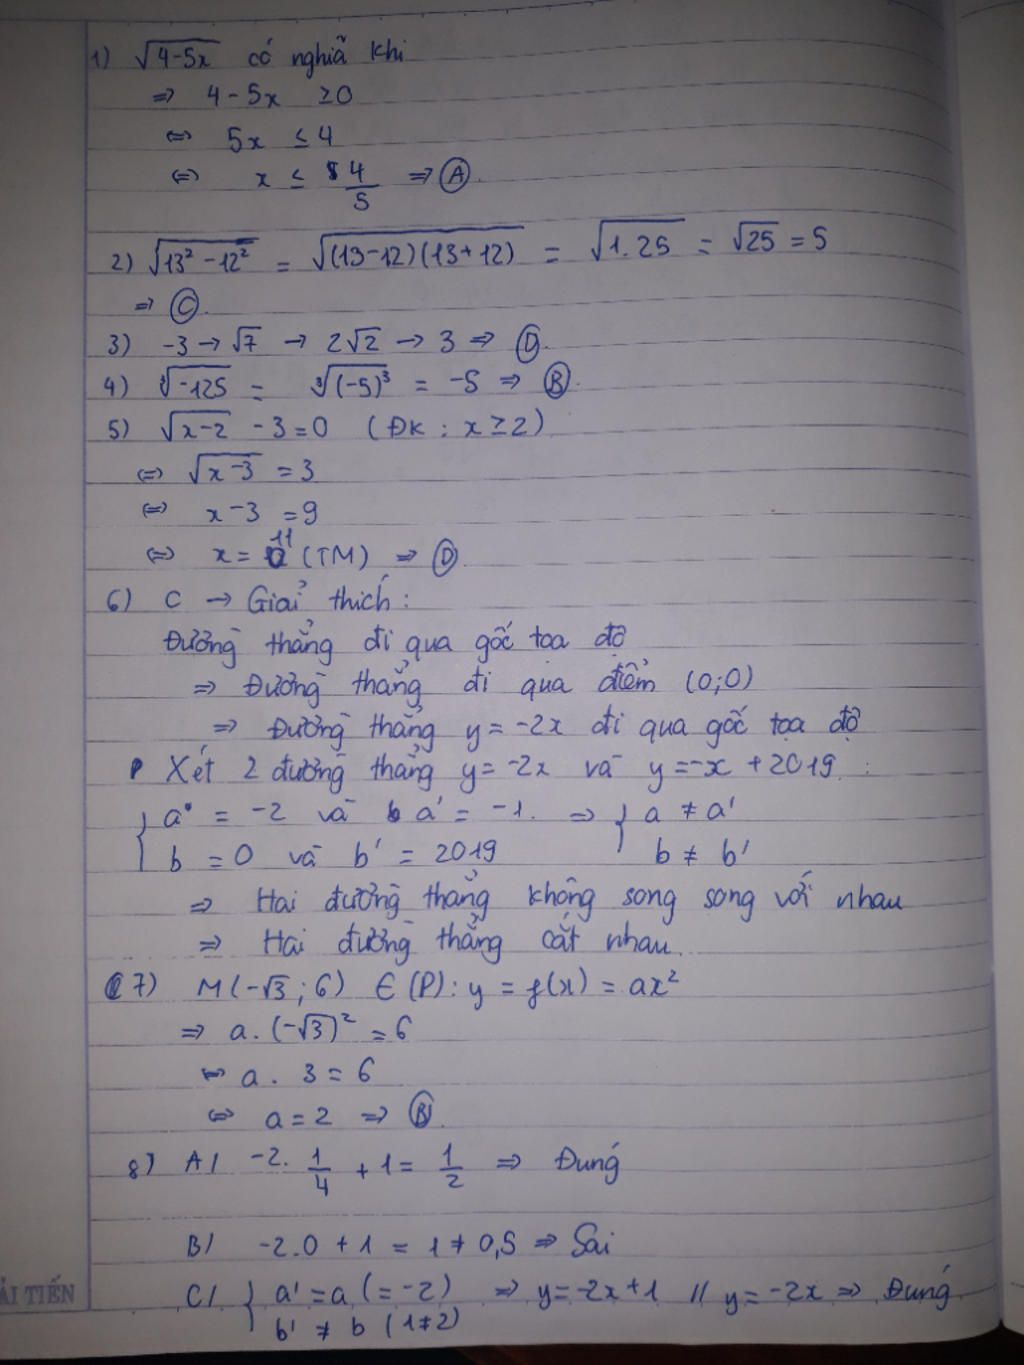 1) √(4-5x) có nghĩa khi
=> 4 - 5x ≥ 0
<=> 5x ≤ 4
<=> x ≤ 4/5 => A.
2) √(13² - 12²) = √((13-12)(13+12)) = √(1.25) = √25 = 5
=> C.
3) -3 → √7 → 2√2 → 3 => D.
4) ∛(-125) = ∛((-5)³) = -5 => B.
5) √(x-2) - 3 = 0 (ĐK : x ≥ 2)
<=> √(x-3) = 3
<=> x-3 = 9
<=> x = 11 (TM) => D.
6) C → Giải thích :
Đường thẳng đi qua gốc toạ độ
=> Đường thẳng đi qua điểm (0;0)
=> Đường thẳng y = -2x đi qua gốc toạ độ
Xét 2 đường thẳng y = -2x và y = -x + 2019 :
{ a = -2 và a' = -1. => { a ≠ a'
b = 0 và b' = 2019 b ≠ b'
=> Hai đường thẳng không song song với nhau
=> Hai đường thẳng cắt nhau.
7) M(-√3 ; 6) ∈ (P) : y = f(x) = ax²
=> a. (-√3)² = 6
<=> a. 3 = 6
<=> a = 2 => B.
8) A/ -2. 1/4 + 1 = 1/2 => Đúng
B/ -2.0 + 1 = 1 ≠ 0,5 => Sai
C/ { a' = a (= -2) => y = -2x+1 // y = -2x => Đúng
b' ≠ b (1≠2)
ẢI TIẾN